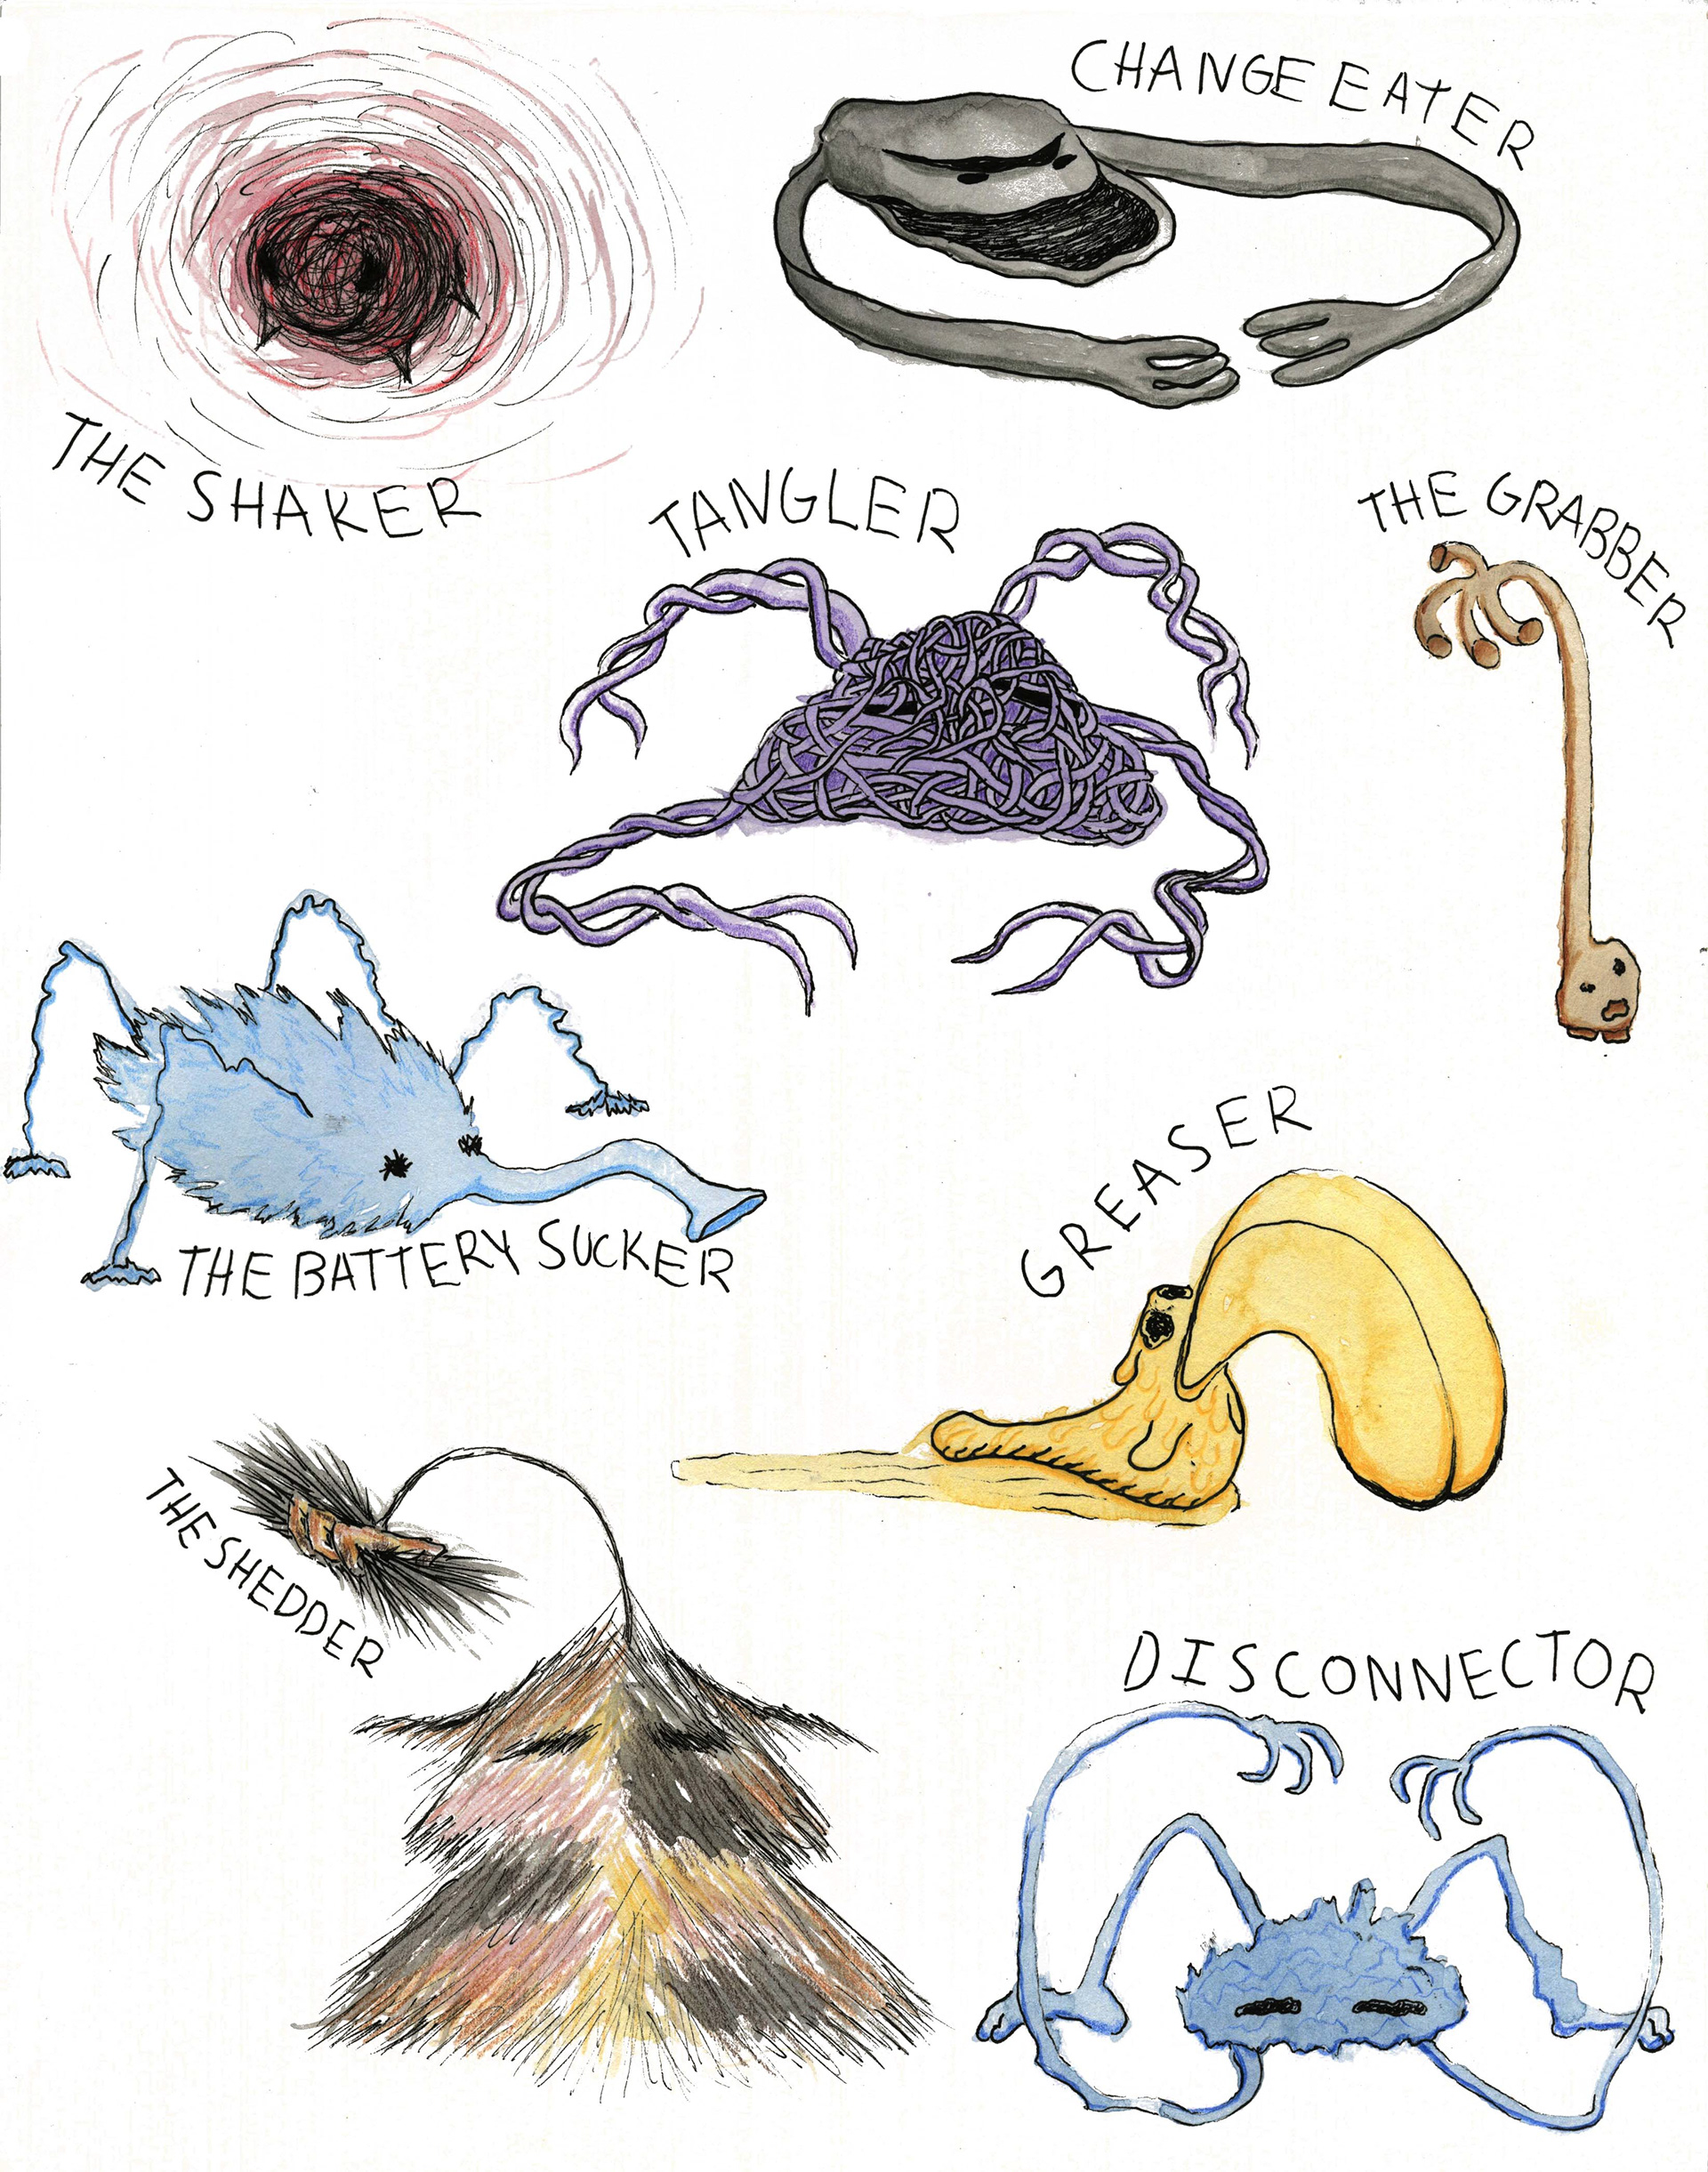 CHANGE EATER
THE SHAKER
TANGLER
THE GRABBER
THE BATTERY SUCKER
GREASER
THE SHEDDER
DISCONNECTOR